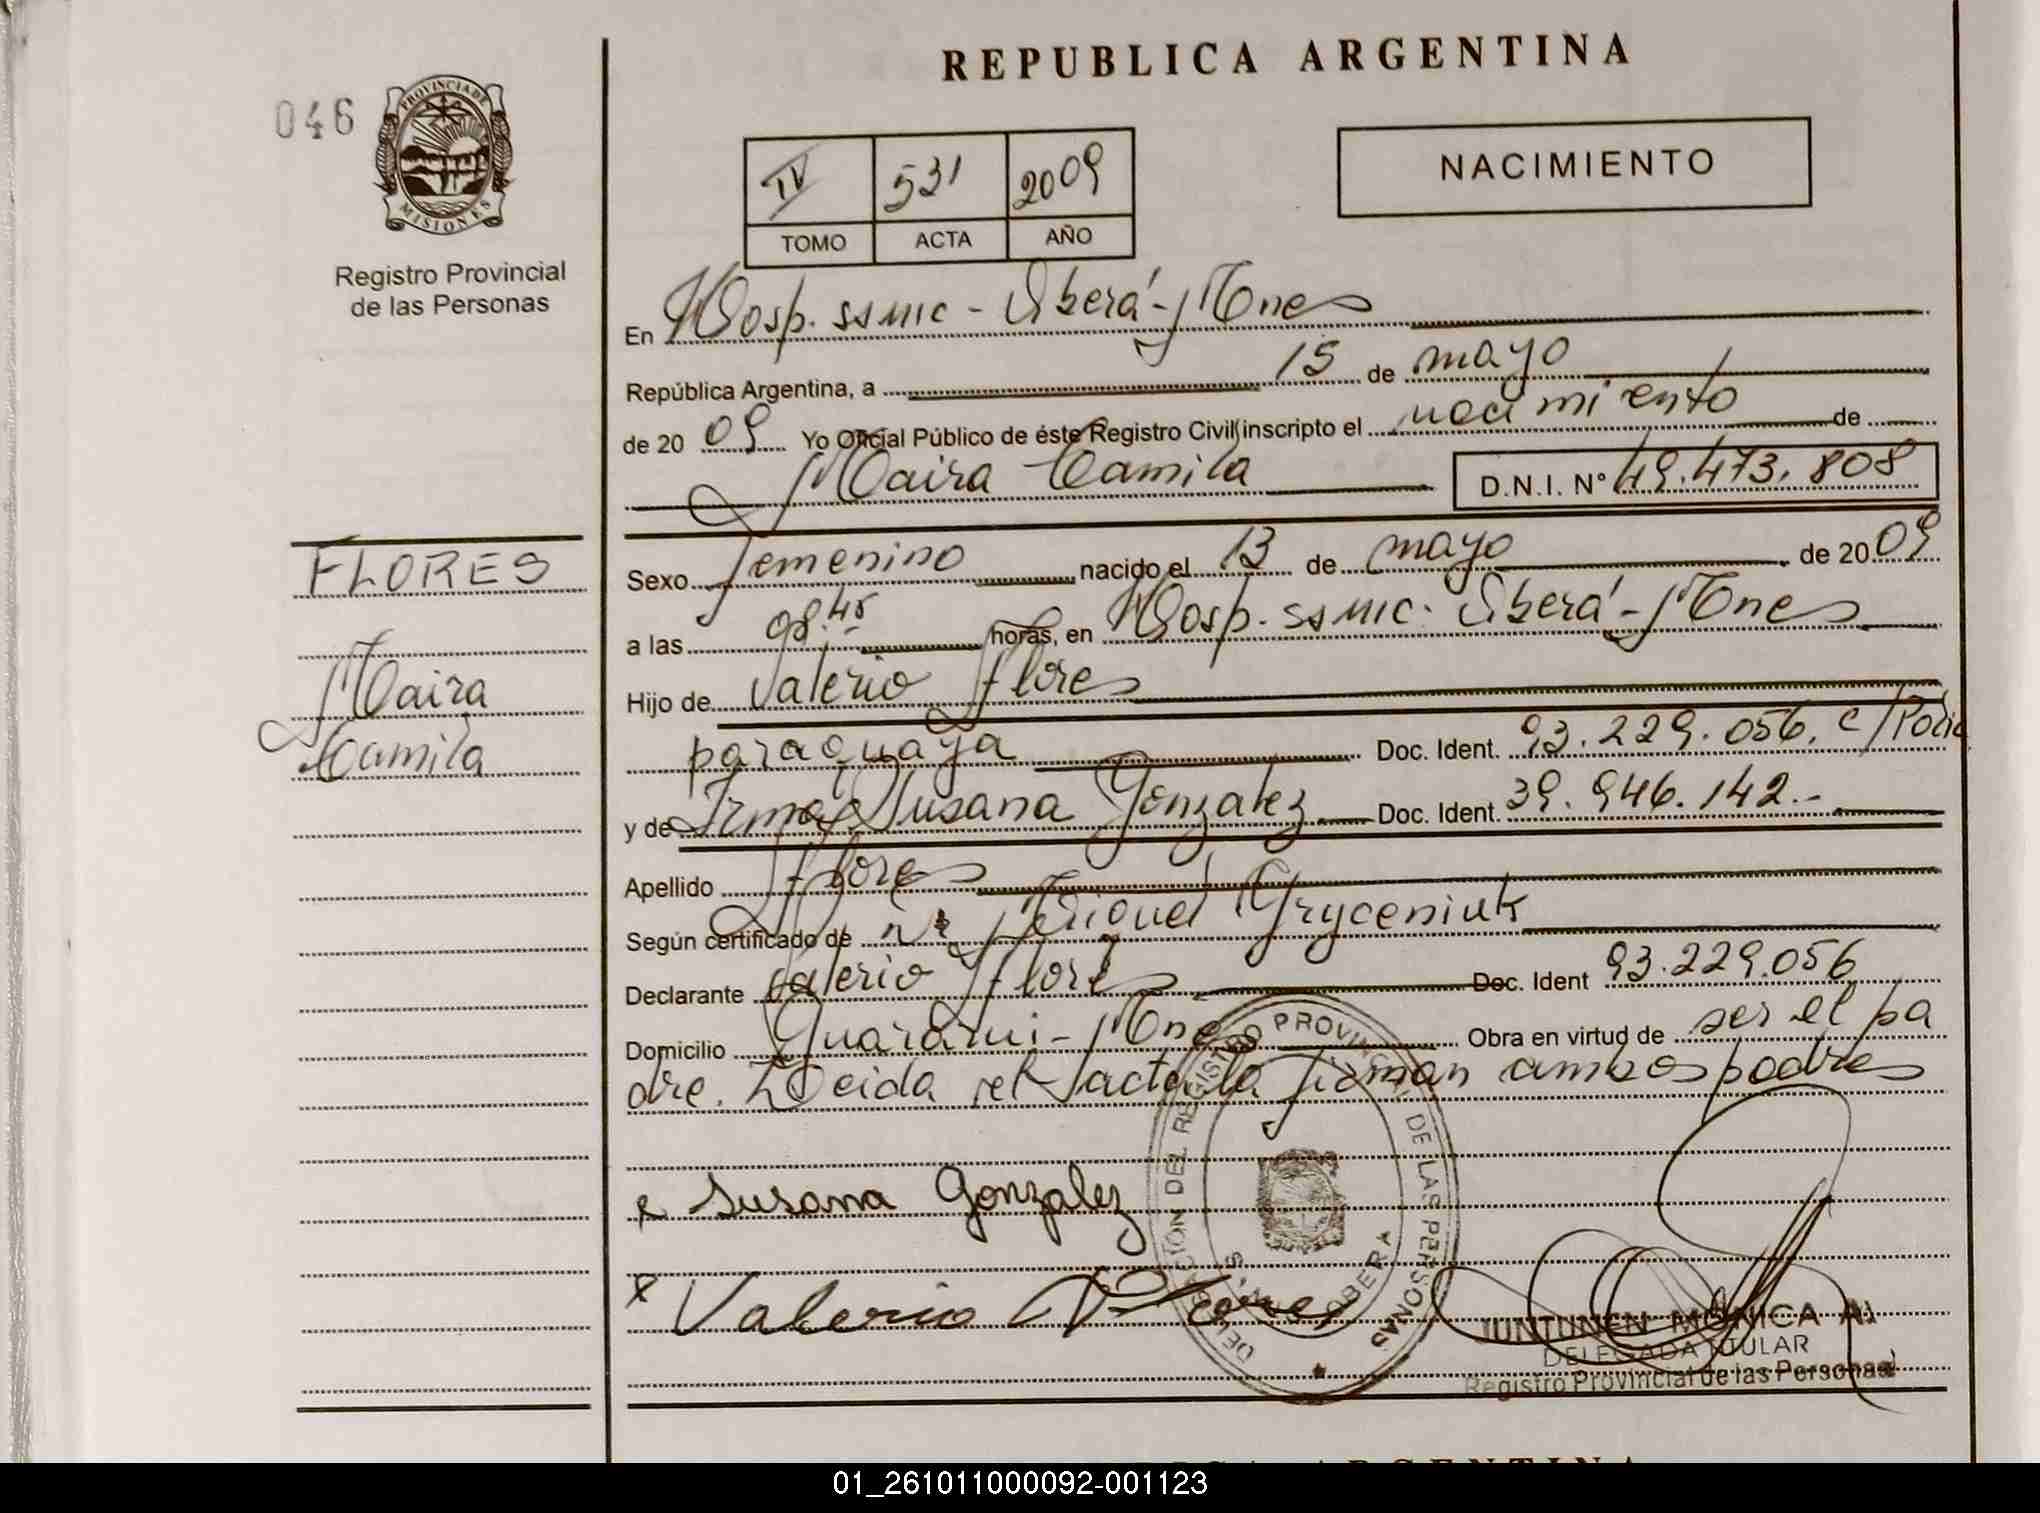 REPUBLICA ARGENTINA
046
PROVINCIA DE
MISIONES
Registro Provincial
de las Personas
IV 531 2009
TOMO ACTA AÑO
NACIMIENTO
En Hosp. SSMIC - Oberá - Mnes
República Argentina, a 15 de mayo
de 20 09 Yo Oficial Público de éste Registro Civil inscripto el nacimiento de
Maira Camila D.N.I. N° 49.473.808
FLORES
Maira
Camila
Sexo femenino nacido el 13 de mayo de 20 09
a las 08.45 horas, en Hosp. SSMIC. Oberá - Mnes
Hijo de Valerio Flores
paraguaya Doc. Ident. 93.229.056. C/Polic
y de Irma Susana Gonzalez Doc. Ident. 39.946.142.-
Apellido Flores
Según certificado de Miguel Gryceniuk
Declarante Valerio Flores Doc. Ident 93.229.056
Domicilio Guaraní - Mnes Obra en virtud de ser el pa
dre. Leida el acta la firman ambos padres
x Susana Gonzalez
x Valerio Flores
DELEGACIÓN DEL REGISTRO PROVINCIAL DE LAS PERSONAS
OBERA
JUNTUNEN MONICA A.
DELEGADA TITULAR
Registro Provincial de las Personas
01_261011000092-001123